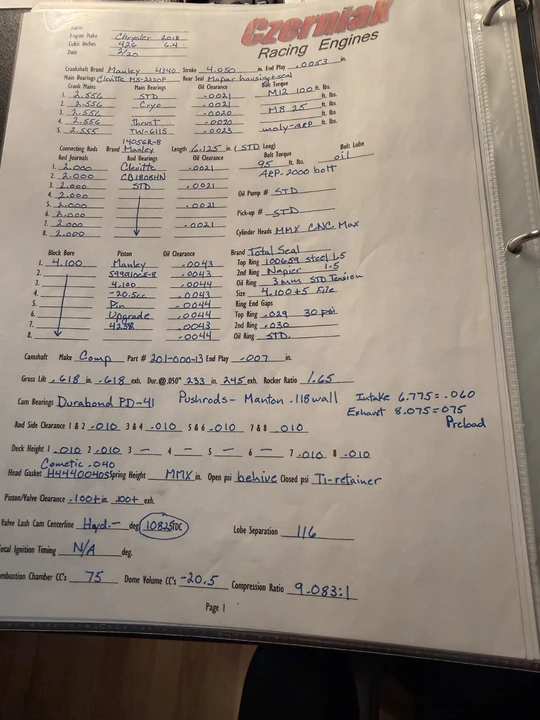 Czerniak
Racing Engines
Name
Engine Make Chrysler 2018
Cubic Inches 426 6.4
Date 2/20
Crankshaft Brand Manley 4340 Stroke 4.050 in. End Play .0053 in.
Main Bearings Clevite Rear Seal Mopar housing & seal
Crank Mains Main Bearings Oil Clearance Bolt Torque
1. 2.556 STD .0021 M12 100 ft. lbs.
2. 2.556 Cryo .0021 ft. lbs.
3. 2.556 .0020 M8 25 ft. lbs.
4. 2.556 thrust .0020 ft. lbs.
5. 2.555 TW-611S .0023 moly-ARP
14056R-8
Connecting Rods Brand Manley Length 6.125 in. (STD Long) Bolt Lube
Rod Journals Rod Bearings Oil Clearance Bolt Torque oil
1. 2.000 Clevite .0021 95 ft. lbs.
2. 2.000 CB1808HN ARP-2000 bolt
3. 2.000 STD .0021
4. 2.000 Oil Pump # STD
5. 2.000 .0021
6. 2.000 Pick-up # STD
7. 2.000 .0021
8. 2.000 Cylinder Heads MMX CNC Max
Block Bore Piston Oil Clearance Brand Total Seal
1. 4.100 Manley .0043 Top Ring steel 1.5
2. .0043 2nd Ring Napier 1.5
3. 4.100 .0044 Oil Ring 3mm STD Tension
4. -20.5cc .0043 Size 4.100+5 File
5. Pin .0044 Ring End Gaps
6. Upgrade .0044 Top Ring .029 30 psi
7. .0043 2nd Ring .030
8. .0044 Oil Ring STD.
Camshaft Make Comp Part # 201-000-13 End Play .007 in.
Gross Lift .618 in. .618 exh. Dur.@.050" 233 in. 245 exh. Rocker Ratio 1.65
Cam Bearings Durabond PD-41 Pushrods- Manton .118 wall Intake 6.775=.060
Exhaust 8.075=.075
Preload
Rod Side Clearance 1 & 2 .010 3 & 4 .010 5 & 6 .010 7 & 8 .010
Deck Height 1 .010 2 .010 3 — 4 — 5 — 6 — 7 .010 8 .010
Cometic .040
Head Gasket Spring Height MMX in. Open psi behive Closed psi Ti-retainer
Piston/Valve Clearance .100+ in. .100+ exh.
Valve Lash Cam Centerline Hyd.- deg TDC Lobe Separation 116
Total Ignition Timing N/A deg.
Combustion Chamber CC's 75 Dome Volume CC's -20.5 Compression Ratio 9.083:1
Page 1